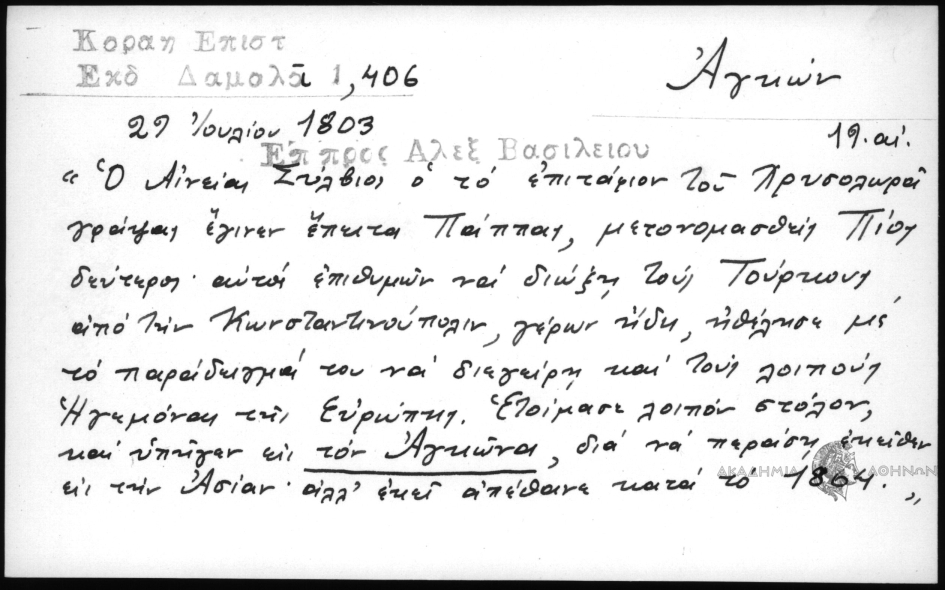 Κοραη Επιστ
Εκδ Δαμαλᾶ 1,406
Ἀγκών
29 Ἰουλίου 1803
19. αἰ.
Επ προς Αλεξ Βασιλειου
"Ὁ Αἰνείας Σύλβιος ὁ τὸ ἐπιτάφιον τοῦ Χρυσολωρᾶ
γράψας ἔγινεν ἔπειτα Πάππας, μετονομασθείς Πίος
δεύτερος· αὐτός ἐπιθυμῶν νά διώξῃ τούς Τούρκους
ἀπό τήν Κωνσταντινούπολιν, γέρων ἤδη, ἠθέλησε μέ
τό παράδειγμά του νά διεγείρῃ καί τούς λοιπούς
Ἡγεμόνας τῆς Εὐρώπης. Ἑτοίμασε λοιπόν στόλον,
καί ὑπῆγεν εἰς τόν Ἀγκῶνα, διά νά περάσῃ ἐκεῖθεν
εἰς τήν Ἀσίαν· ἀλλ' ἐκεῖ ἀπέθανε κατά τό 1864."
ΑΚΑΔΗΜΙΑ ΑΘΗΝΩΝ